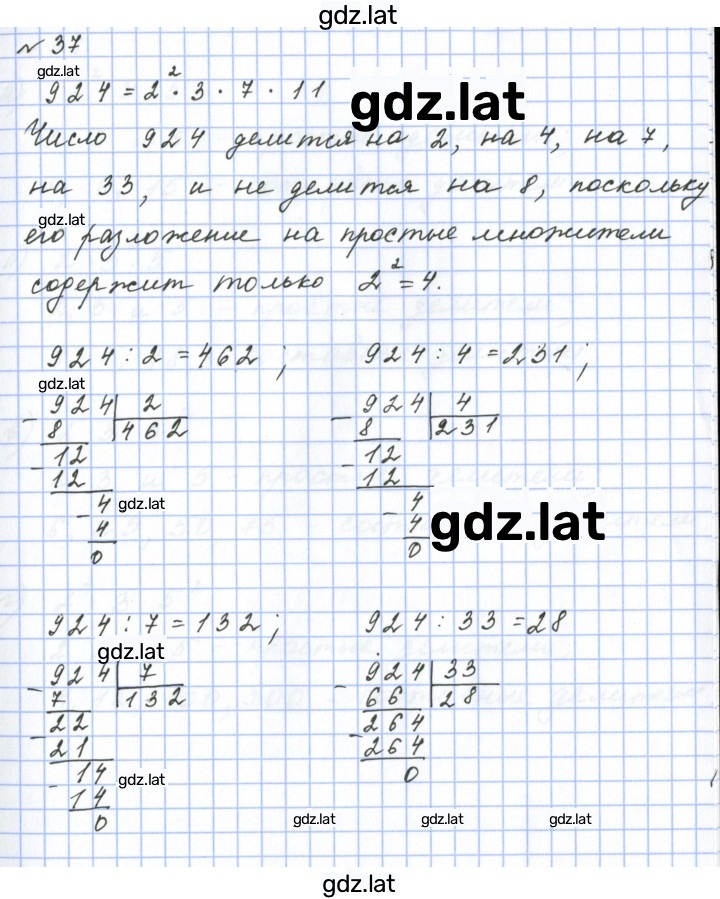 gdz.lat
№ 37
gdz.lat
924 = 2² · 3 · 7 · 11
gdz.lat
Число 924 делится на 2, на 4, на 7,
на 33, и не делится на 8, поскольку
gdz.lat
его разложение на простые множители
содержит только 2² = 4.
924 : 2 = 462 ; 924 : 4 = 231 ;
gdz.lat
924 2 924 4
- 8 462 - 8 231
12 12
- 12 - 12
4 gdz.lat 4
- 4 - 4 gdz.lat
0 0
924 : 7 = 132 ; 924 : 33 = 28
gdz.lat
924 7 924 33
- 7 132 - 66 28
22 264
- 21 - 264
14 gdz.lat 0
- 14
0 gdz.lat gdz.lat gdz.lat
gdz.lat